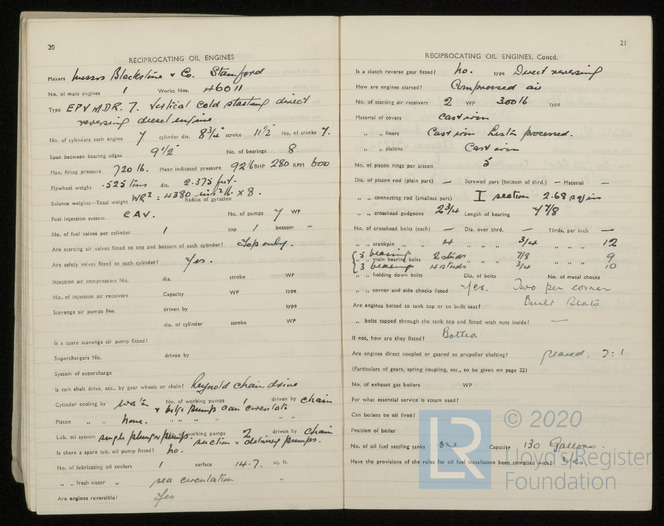 20
RECIPROCATING OIL ENGINES
Makers Messrs Blackstone & Co. Stamford
No. of main engines 1 Works Nos. 46011
Type EPVMDR. 7. Vertical cold starting direct
reversing diesel engine
No. of cylinders each engine 7 cylinder dia. 8¾" stroke 11½" No. of cranks 7.
Span between bearing edges 9½" No. of bearings 8
Max. firing pressure 720 lb. Mean indicated pressure 92 lb BHP 280 RPM 600
Flywheel weight .525 tons dia. 2.375 feet.
Balance weights—Total weight WR² = 4380 lb. × 8. Radius of gyration
Fuel injection system CAV. No. of pumps 7 WP
No. of fuel valves per cylinder 1 top 1 bottom —
Are starting air valves fitted to top and bottom of each cylinder? Top only.
Are safety valves fitted to each cylinder? Yes.
Injection air compressors No. dia. stroke WP
No. of injection air receivers Capacity WP
Scavenge air pumps No. driven by type
dia. of cylinder stroke WP
Is a spare scavenge air pump fitted?
Superchargers No. driven by
System of supercharge
Is cam shaft drive, etc., by gear wheels or chain? Reynold chain drive
Cylinder cooling by water No. of working pumps 1 driven by chain
& bilge pump can circulate
Piston „ „ none. „ „ „ „
Lub. oil system No. of working pumps 2 driven by chain
suction & delivery pumps.
Is there a spare lub. oil pump fitted? no.
No. of lubricating oil coolers 1 surface 14.7. sq. ft.
„ „ fresh water „ sea circulation „
Are engines reversible? Yes
21
RECIPROCATING OIL ENGINES, Contd.
Is a clutch reverse gear fitted? no. type Direct reversing
How are engines started? Compressed air
No. of starting air receivers 2 WP 300 lb type
Material of covers Cast iron
„ „ liners Cast iron Listn processed.
„ „ pistons Cast iron
No. of piston rings per piston 5
Dia. of piston rod (plain part) — Screwed part (bottom of thrd.) — Material —
„ „ connecting rod (smallest part) I section 2.68 sq/ins
„ „ crosshead gudgeons 2¾ Length of bearing 4⅞
No. of crosshead bolts (each) — Dia. over thrd. — Thrds. per inch —
„ „ crankpin „ 4 „ „ ¾ „ „ 12
5 bearing „ main bearing bolts 2 studs ⅞ 9
3 bearing 4 studs ¾ 10
„ „ holding down bolts Dia. of bolts No. of metal chocks
„ „ corner and side chocks fitted Yes. Two per corner
Are engines bolted to tank top or to built seat? Built Seats
„ bolts tapped through the tank top and fitted with nuts inside? —
If not, how are they fitted? Bolted
Are engines direct coupled or geared to propeller shafting? geared. 2:1
(Particulars of gears, spring coupling, etc., to be given on page 32)
No. of exhaust gas boilers WP
For what essential service is steam used?
Can boilers be oil fired?
Position of boiler
No. of oil fuel settling tanks one Capacity 130 Gallons
Have the provisions of the rules for oil fuel installation been complied with? Yes
LR
© 2020
Lloyd's Register
Foundation